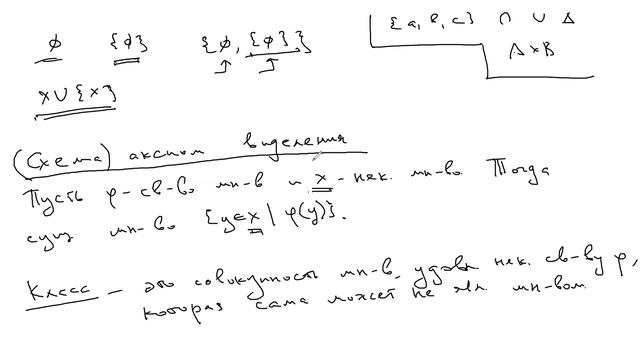 ∅ {∅} {∅, {∅}}
{a, b, c} ∩ ∪ Δ
A×B
x∪{x}
(Схема) аксиом выделения
Пусть φ - св-во мн-в и x - нек. мн-во. Тогда
сущ мн-во {y∈x | φ(y)}.
Класс – это совокупность мн-в, удовл нек. св-ву φ,
которая сама может не явл. мн-вом